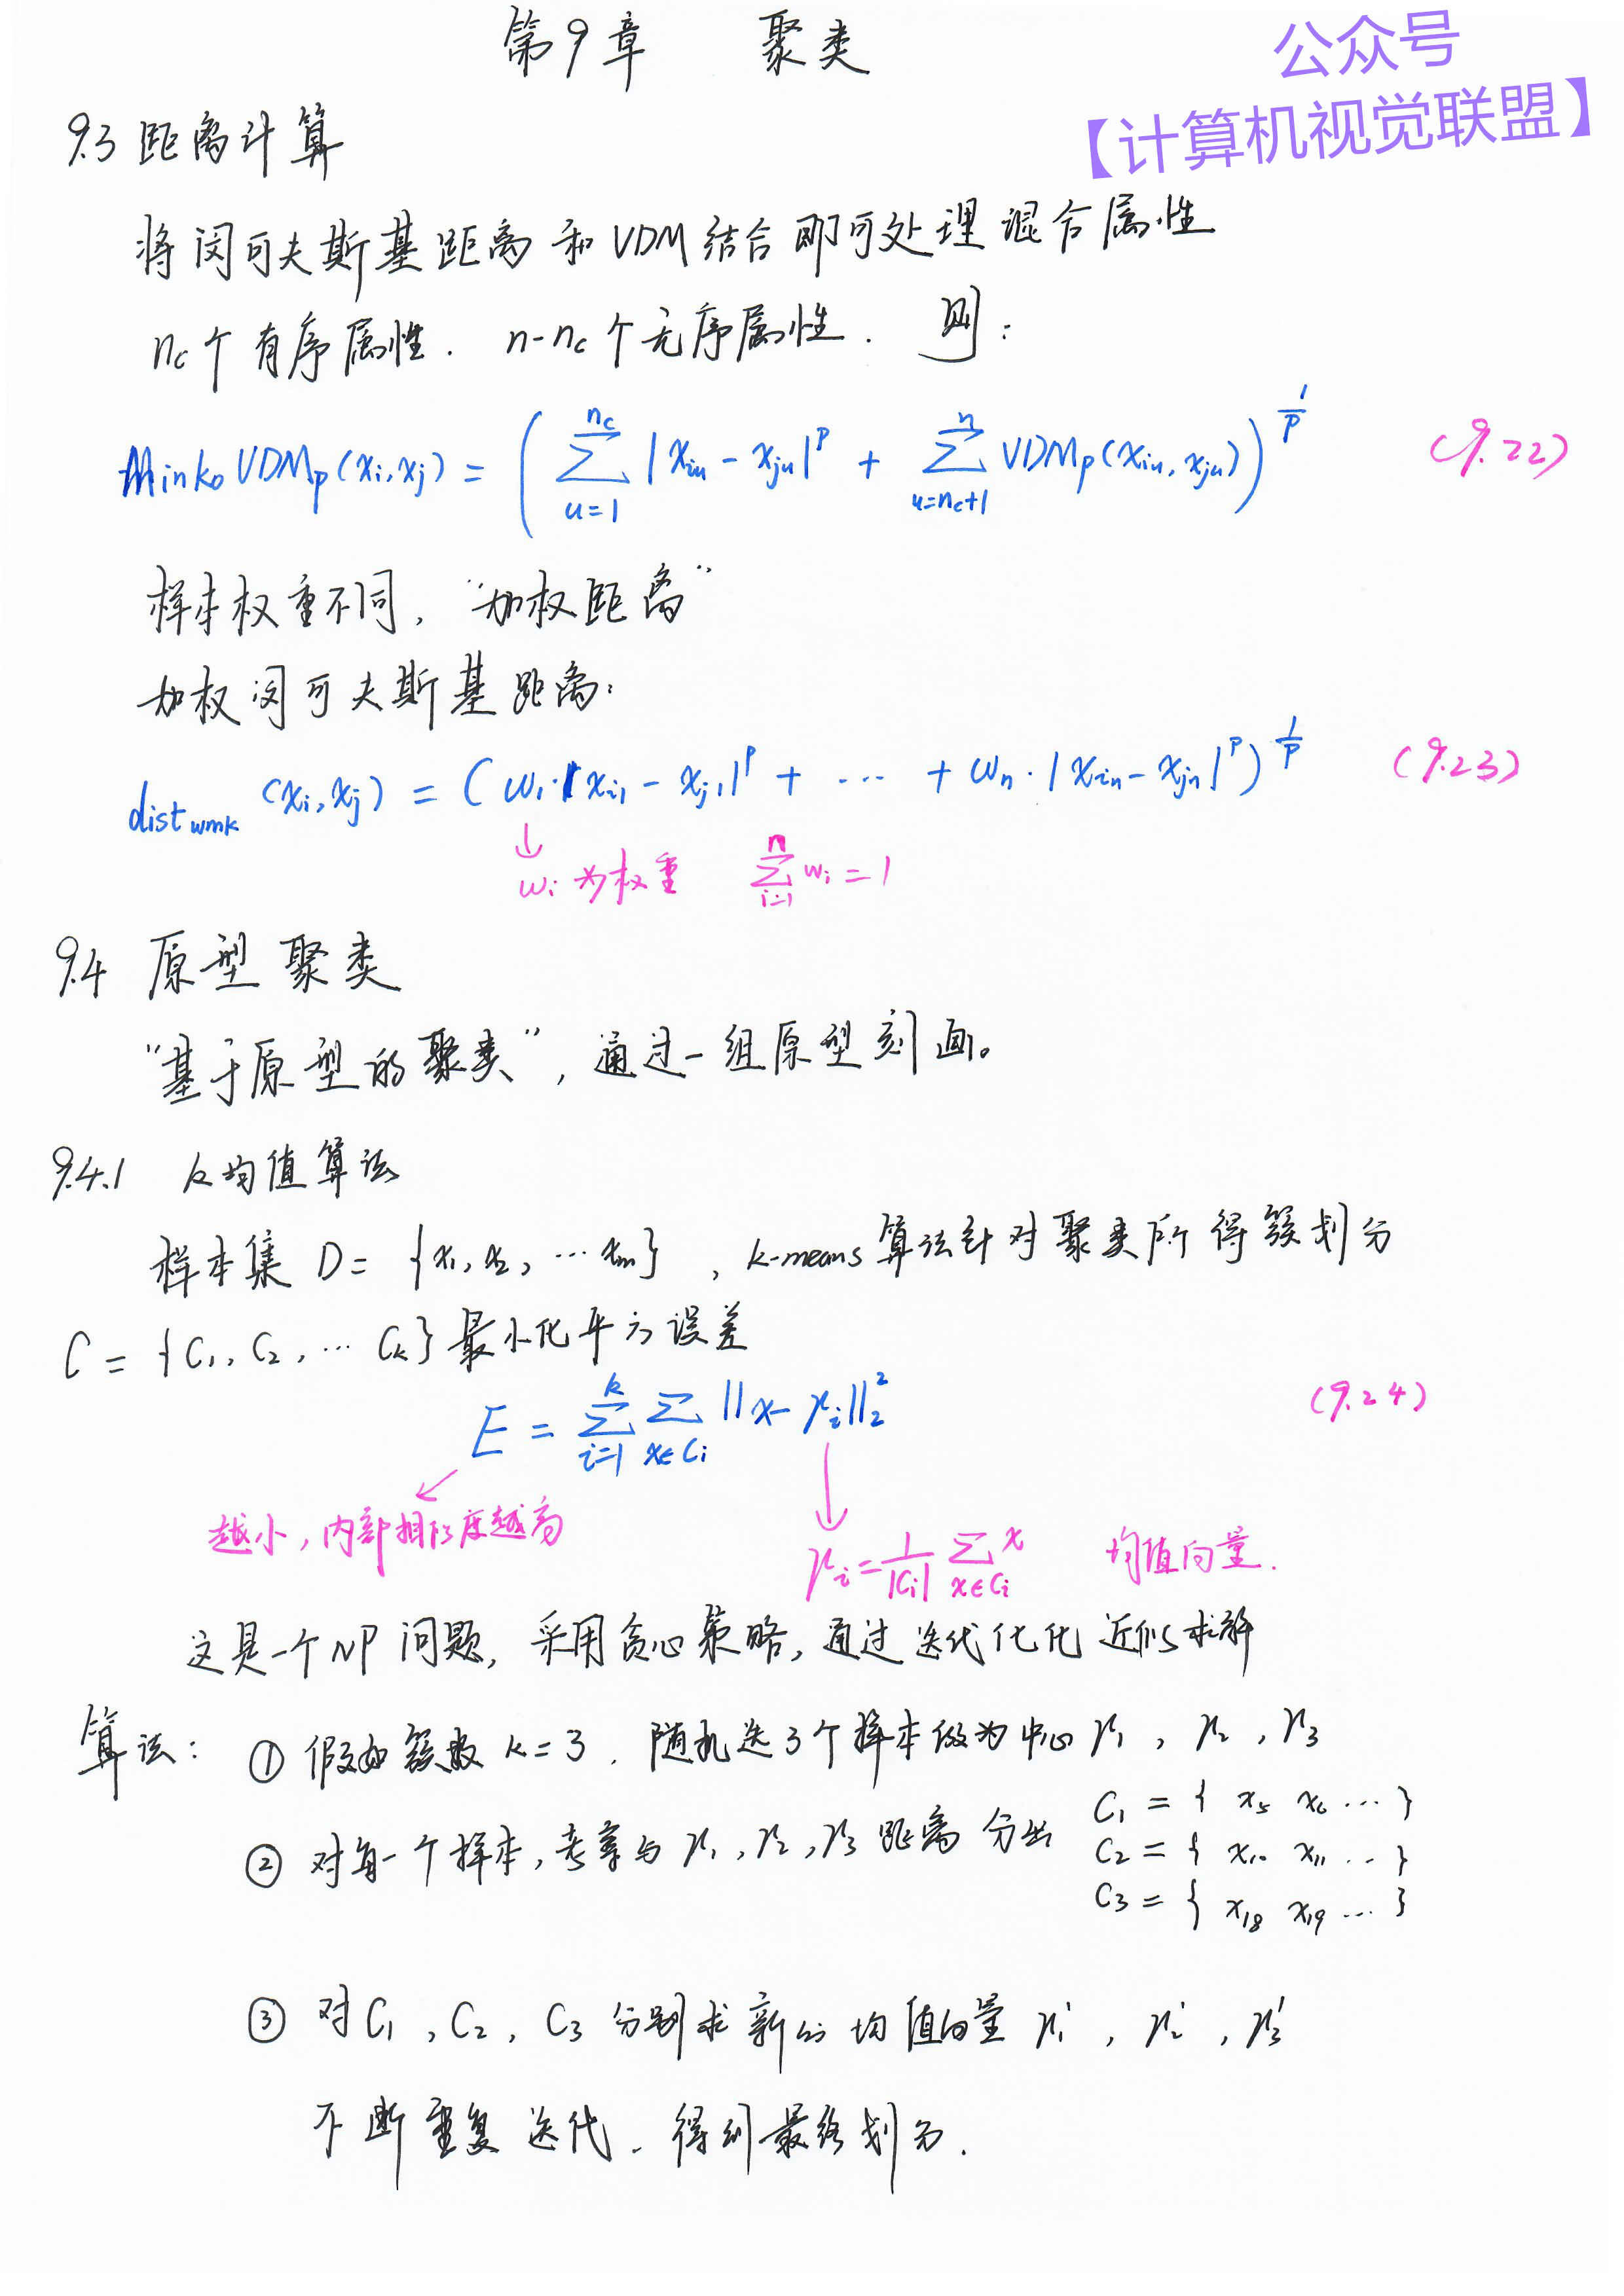 第9章 聚类
公众号
【计算机视觉联盟】
9.3 距离计算
将闵可夫斯基距离和VDM结合即可处理混合属性
n_c个有序属性. n-n_c个无序属性. 则:
MinkoVDM_p(x_i,x_j) = ( ∑_{u=1}^{n_c} |x_{iu} - x_{ju}|^p + ∑_{u=n_c+1}^{n} VDM_p(x_{iu}, x_{ju}) )^{1/p} (9.22)
样本权重不同, “加权距离”
加权闵可夫斯基距离:
dist_{wmk}(x_i,x_j) = (w_1·|x_{i1} - x_{j1}|^p + ... + w_n·|x_{in} - x_{jn}|^p)^{1/p} (9.23)
↓
w_i为权重 ∑_{i=1}^{n} w_i = 1
9.4 原型聚类
“基于原型的聚类”, 通过一组原型刻画。
9.4.1 k均值算法
样本集 D = {x_1, x_2, ... x_m}, k-means算法针对聚类所得簇划分
C = {C_1, C_2, ... C_k} 最小化平方误差
E = ∑_{i=1}^{k} ∑_{x∈C_i} ||x - μ_i||_2^2 (9.24)
越小, 内部相似度越高
μ_i = 1/|C_i| ∑_{x∈C_i} x 均值向量.
这是一个NP问题, 采用贪心策略, 通过迭代化化近似求解
算法: ① 假如簇数 k=3. 随机选3个样本做为中心 μ_1, μ_2, μ_3
② 对每一个样本, 考察与 μ_1, μ_2, μ_3 距离 分出
C_1 = { x_5 x_6 ... }
C_2 = { x_10 x_11 ... }
C_3 = { x_18 x_19 ... }
③ 对C_1, C_2, C_3 分别求新的均值向量 μ_1', μ_2', μ_3'
不断重复迭代. 得到最终划分.